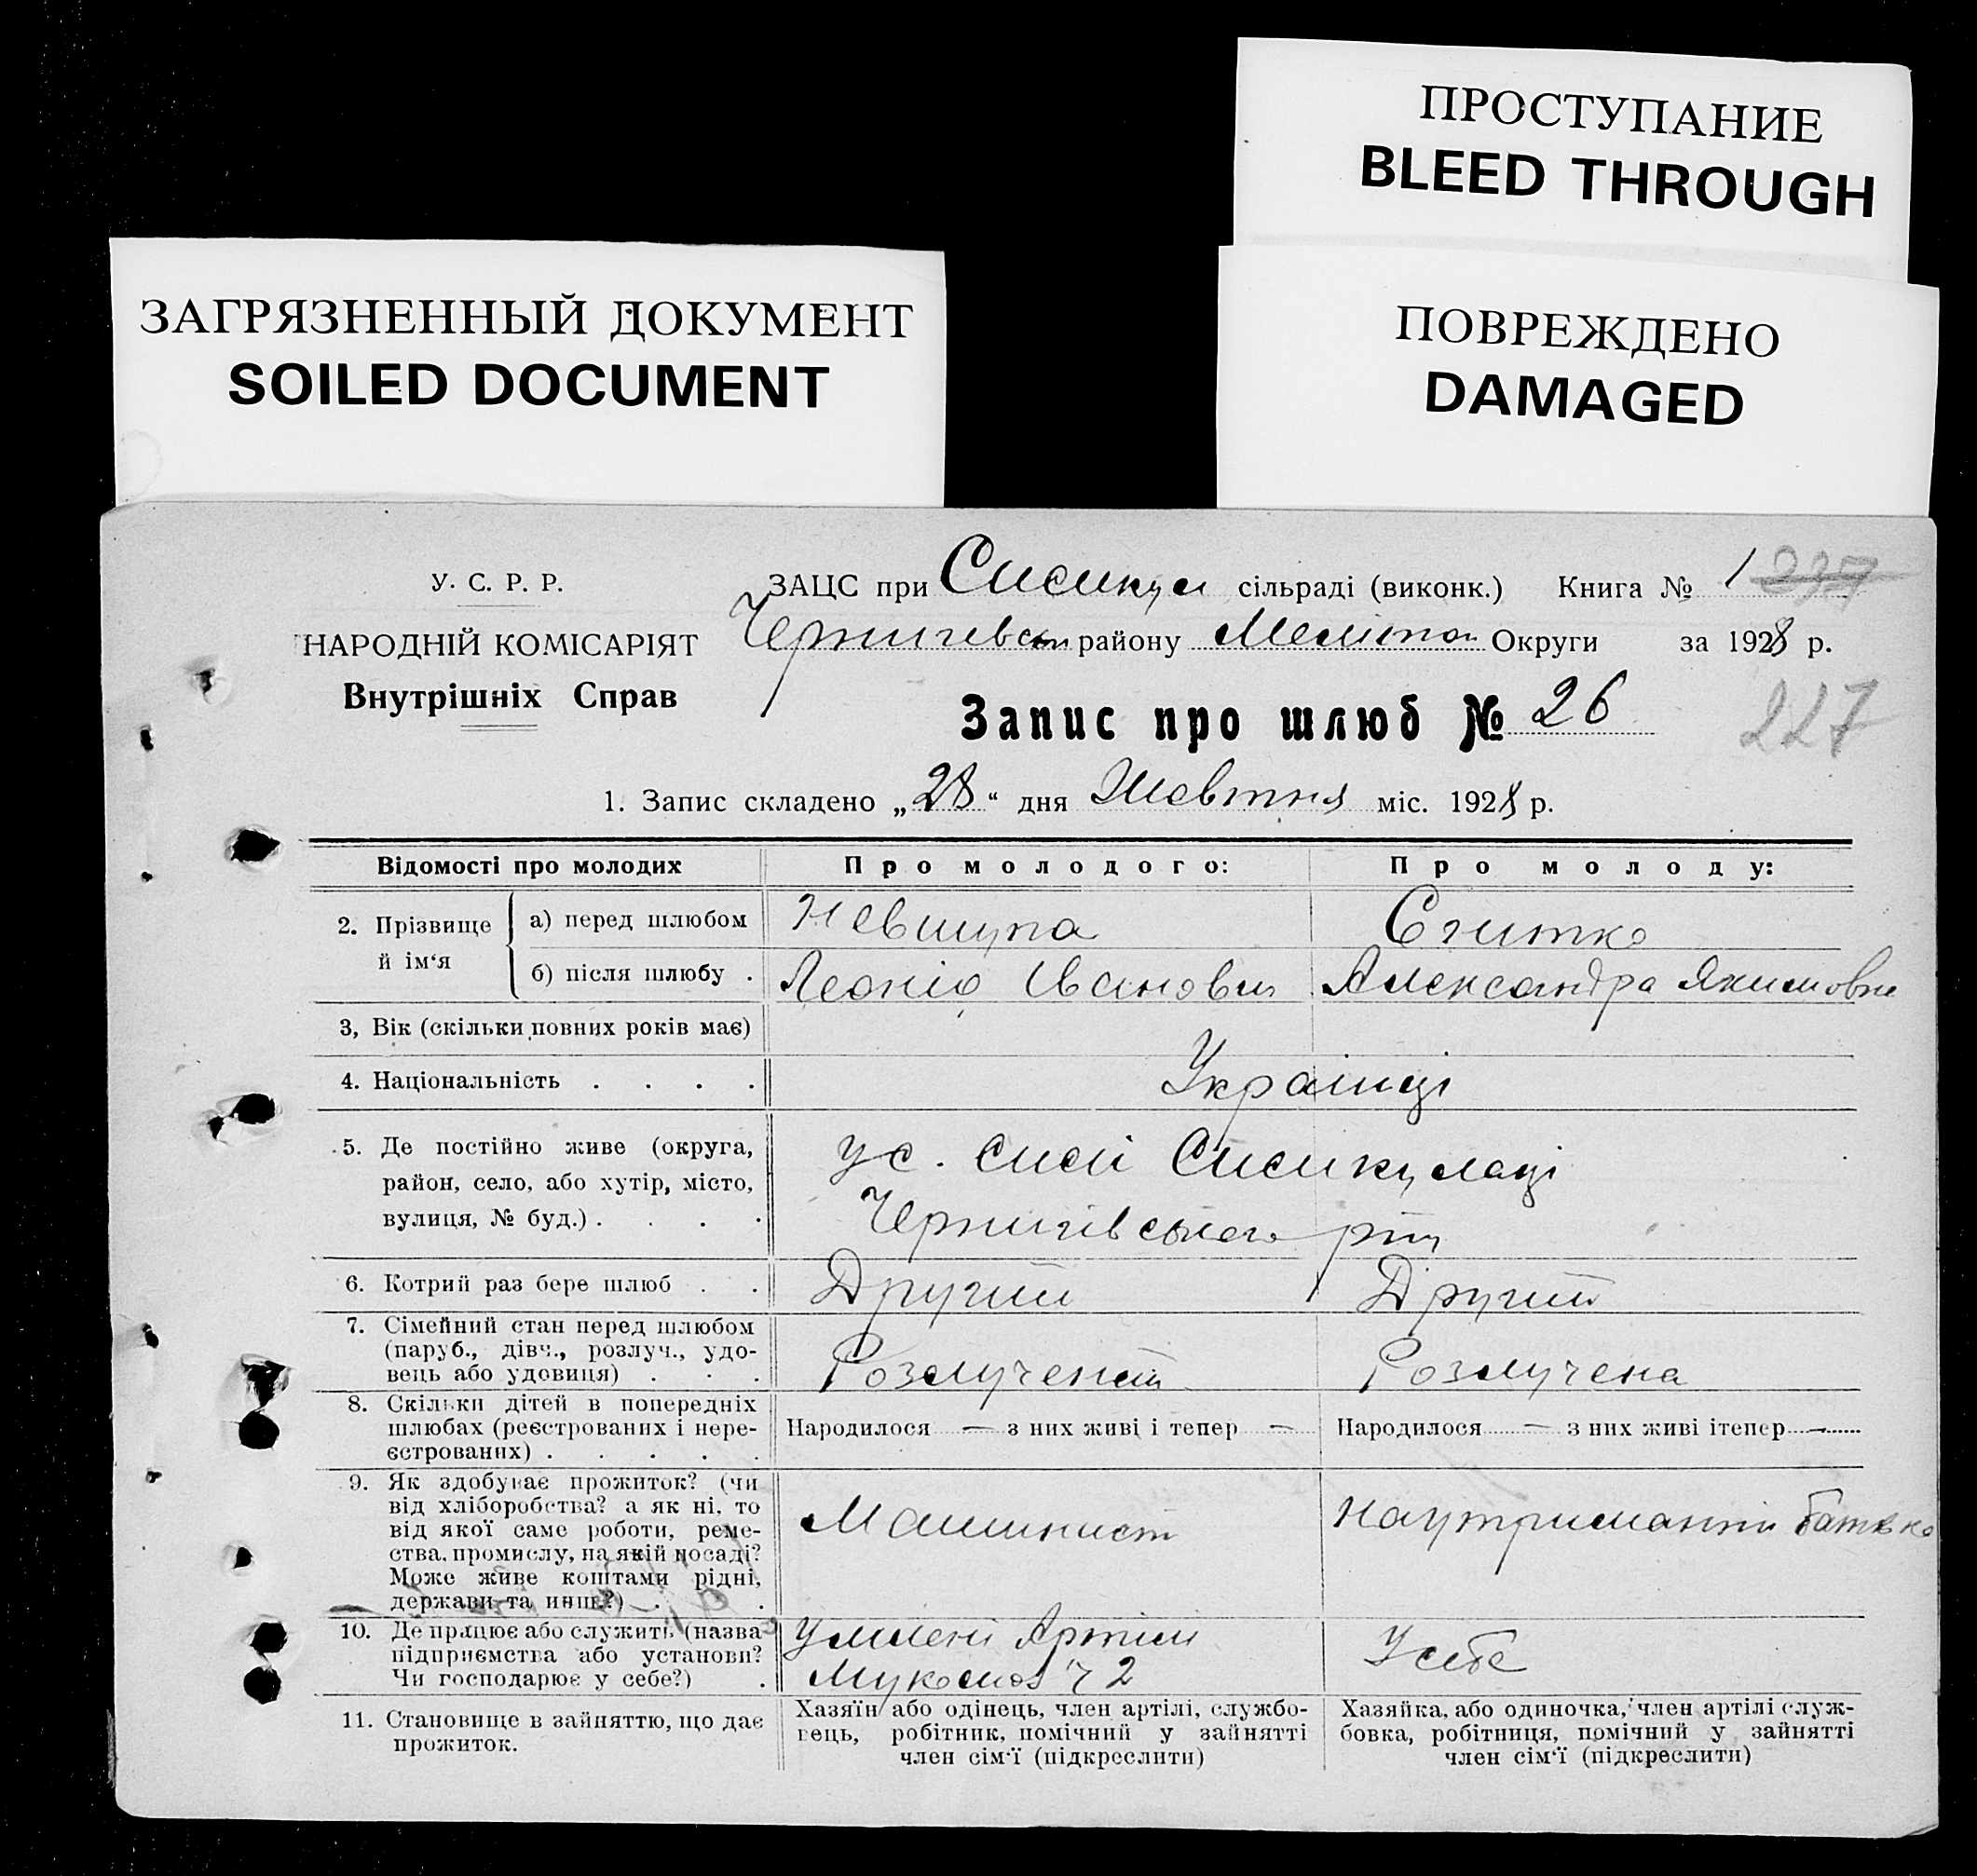 ПРОСТУПАНИЕ
BLEED THROUGH
ЗАГРЯЗНЕННЫЙ ДОКУМЕНТ
SOILED DOCUMENT
ПОВРЕЖДЕНО
DAMAGED
У. С. Р. Р.
НАРОДНІЙ КОМІСАРІЯТ
Внутрішніх Справ
ЗАЦС при сільраді (виконк.) Книга № 1 237
району Меліпол Округи за 1928 р.
Запис про шлюб № 26
227
1. Запис складено „28“ дня Жовтня міс. 1928 р.
Відомості про молодих
Про молодого:
Про молоду:
2. Прізвище й ім‘я
а) перед шлюбом
б) після шлюбу .
Леонід Іванович
Александра Якимовна
3, Вік (скільки повних років має)
4. Національність . . . .
Українці
5. Де постійно живе (округа,
район, село, або хутір, місто,
вулиця, № буд.) . . . .
Чернигівського р-ну
6. Котрий раз бере шлюб . .
Другий
Другий
7. Сімейний стан перед шлюбом
(паруб., дівч., розлуч., удо-
вець або удовиця) . . .
Розлучений
Розлучена
8. Скільки дітей в попередніх
шлюбах (реєстрованих і нере-
єстрованих) . . . . .
Народилося — з них живі і тепер —
Народилося — з них живі ітепер —
9. Як здобуває прожиток? (чи
від хліборобства? а як ні, то
від якої саме роботи, реме-
ства, промислу, на якій посаді?
Може живе коштами рідні,
держави та инш.?) . .
Машинист
На утриманні батька
10. Де працює або служить (назва
підприємства або установи?
Чи господарює у себе?) .
У млені Артілі
Мукомол Ч 2
У себе
11. Становище в зайняттю, що дає
прожиток.
Хазяїн або одінець, член артілі, службо-
вець, робітник, помічний у зайнятті
член сім‘ї (підкреслити)
Хазяйка, або одиночка, член артілі служ-
бовка, робітниця, помічний у зайнятті
член сім‘ї (підкреслити)